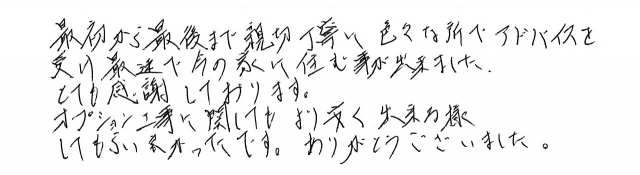 最初から最後まで親切丁寧に色々な所でアドバイスを
受け最速で今の家に住む事が出来ました。
とても感謝しております。
オプション工事に関しても より安く 出来る様
してもらい良かったです。ありがとうございました。